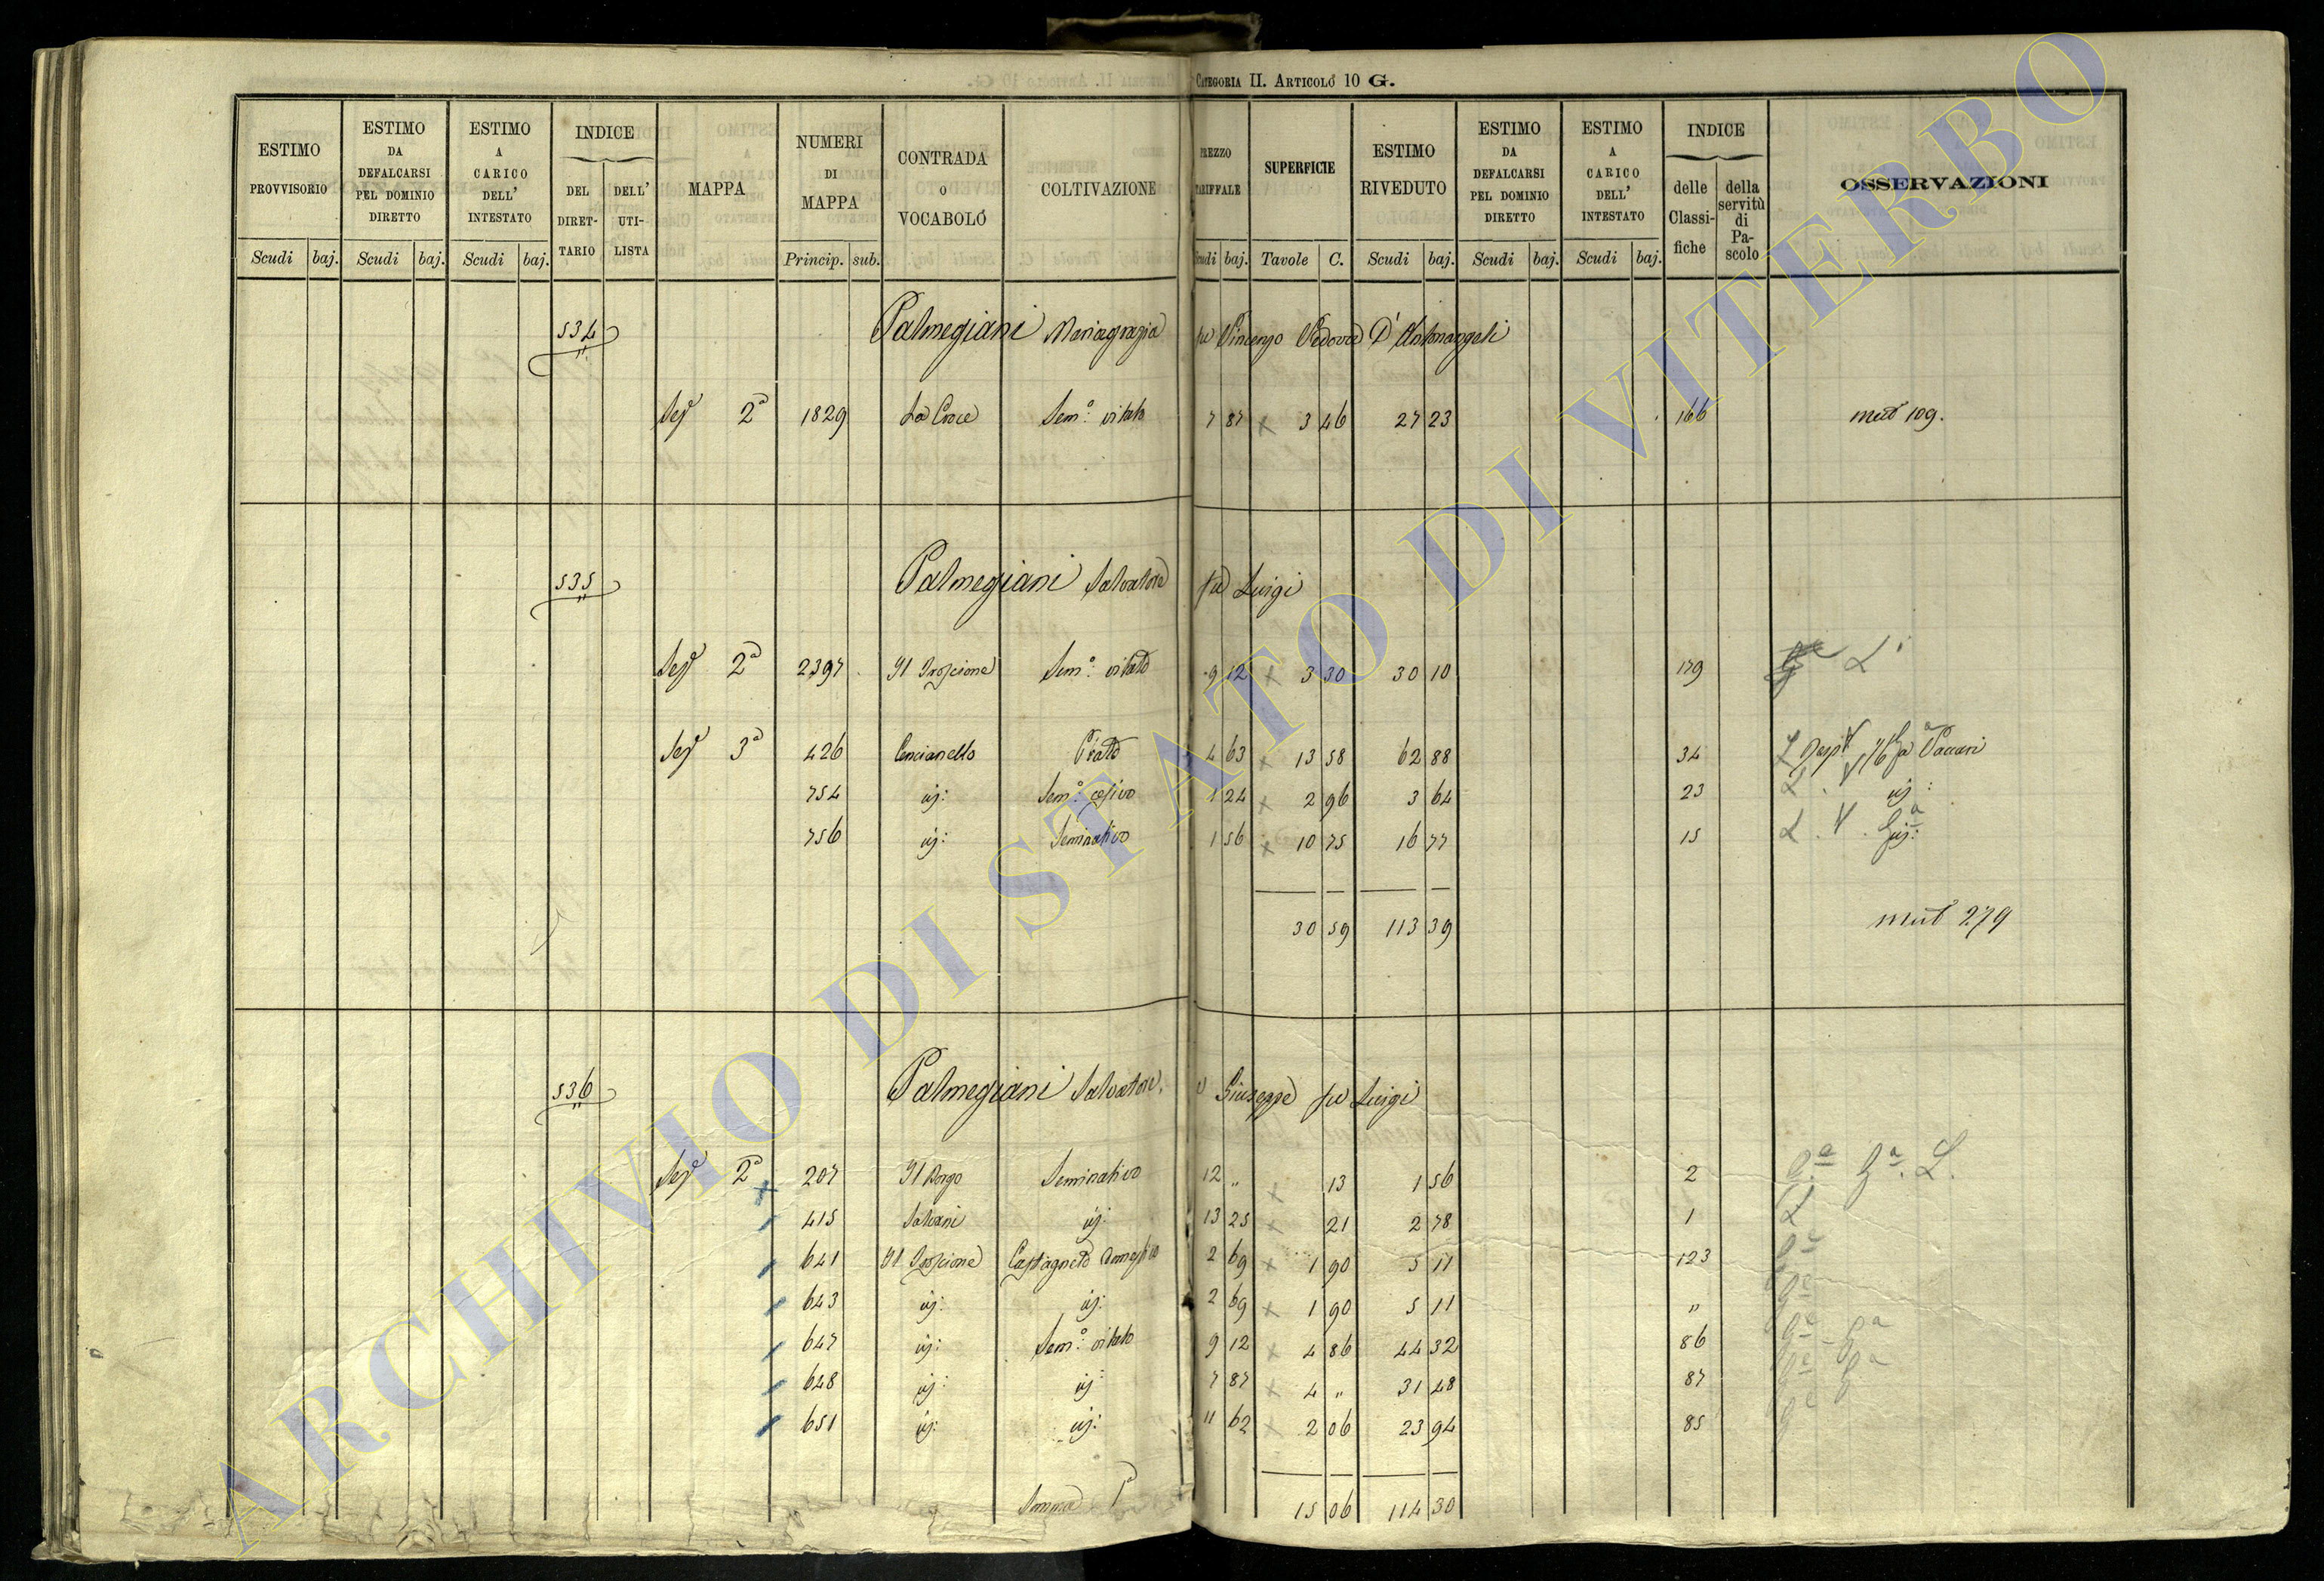 CATEGORIA II. ARTICOLO 10 G.
ESTIMO PROVVISORIO
ESTIMO DA DEFALCARSI PEL DOMINIO DIRETTO
ESTIMO A CARICO DELL' INTESTATO
INDICE
DEL DIRET-TARIO
DELL' UTI-LISTA
MAPPA
NUMERI DI MAPPA
CONTRADA O VOCABOLO
COLTIVAZIONE
PREZZO TARIFFALE
SUPERFICIE
ESTIMO RIVEDUTO
ESTIMO DA DEFALCARSI PEL DOMINIO DIRETTO
ESTIMO A CARICO DELL' INTESTATO
INDICE
delle Classi-fiche
della servitù di Pa-scolo
OSSERVAZIONI
Scudi baj. Scudi baj. Scudi baj. Princip. sub. Scudi baj. Tavole C. Scudi baj. Scudi baj. Scudi baj.
534 Palmegiani Mariagrazia fu Vincenzo Vedova D'Antonangeli
Sez 2a 1829 La Croce Sem.o vitato 7 87 3 46 27 23 166 mut 109.
535 Palmegiani Salvatore fu Luigi
Sez 2a 2397 Il Poscione Sem.o vitato 9 12 3 30 30 10 179 L
Sez 3a 426 Cencianello Prato 4 63 13 58 62 88 34
754 idj: Sem.o cesivo 1 24 2 96 3 64 23 idj:
756 idj: Seminativo 1 56 10 75 16 77 15 idj:
30 59 113 39
mut 279
536 Palmegiani Salvatore, e Giuseppe fu Luigi
Sez 2a 207 Il Borgo Seminativo 12 " 13 1 56 2
415 Salvani idj: 13 25 21 2 78 1 L
641 Il Poscione Castagneto domestico 2 69 1 90 5 11 123
643 idj: idj: 2 69 1 90 5 11 "
647 idj: Sem.o vitato 9 12 4 86 44 32 86
648 idj: idj: 7 87 4 " 31 48 87
651 idj: idj: 11 62 2 06 23 94 85
Somma 15 06 114 30
ARCHIVIO DI STATO DI VITERBO